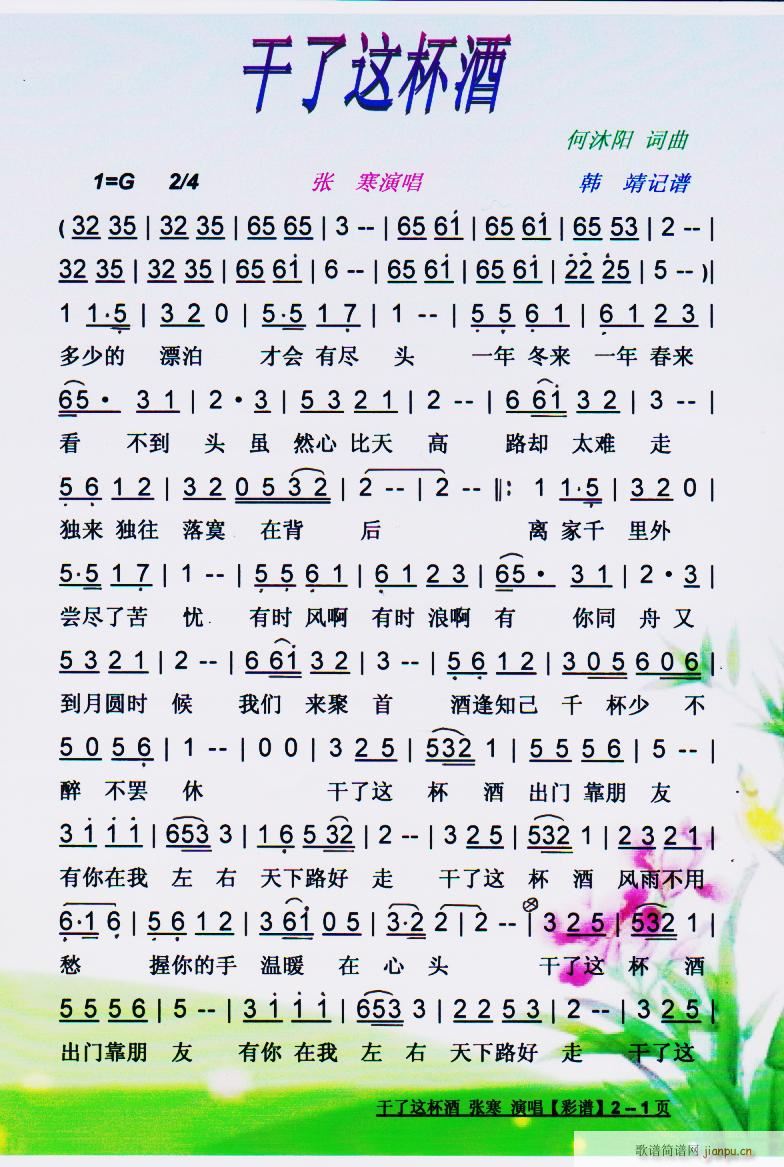 干了这杯酒
何沐阳 词曲
1=G 2/4 张 寒演唱 韩 靖记谱
( 32 35 | 32 35 | 65 65 | 3 -- | 65 61 | 65 61 | 65 53 | 2 -- |
32 35 | 32 35 | 65 61 | 6 -- | 65 61 | 65 61 | 22 25 | 5 -- )|
1 1·5 | 3 2 0 | 5·5 1 7 | 1 -- | 5 5 6 1 | 6 1 2 3 |
多少的 漂泊 才会 有尽 头 一年 冬来 一年 春来
65· 3 1 | 2·3 | 5 3 2 1 | 2 -- | 6 61 3 2 | 3 -- |
看 不到 头 虽 然心 比天 高 路却 太难 走
5 6 1 2 | 3 2 0 5 3 2 | 2 -- | 2 -- ‖: 1 1·5 | 3 2 0 |
独来 独往 落寞 在背 后 离 家千 里外
5·5 1 7 | 1 -- | 5 5 6 1 | 6 1 2 3 | 65· 3 1 | 2·3 |
尝尽了苦 忧 有时 风啊 有时 浪啊 有 你同 舟 又
5 3 2 1 | 2 -- | 6 61 3 2 | 3 -- | 5 6 1 2 | 3 0 5 6 0 6 |
到月圆时 候 我们 来聚 首 酒逢知己 千 杯少 不
5 0 5 6 | 1 -- | 0 0 | 3 2 5 | 532 1 | 5 5 5 6 | 5 -- |
醉 不罢 休 干了这 杯 酒 出门 靠朋 友
3 1 1 1 | 653 3 | 1 6 5 32 | 2 -- | 3 2 5 | 532 1 | 2 3 2 1 |
有你在我 左 右 天下路好 走 干了这 杯 酒 风雨不用
6·1 6 | 5 6 1 2 | 3 61 0 5 | 3·2 2 | 2 -- | 3 2 5 | 532 1 |
愁 握你的手 温暖 在 心头 干了这 杯 酒
5 5 5 6 | 5 -- | 3 1 1 1 | 653 3 | 2 2 5 3 | 2 -- | 3 2 5 |
出门靠朋 友 有你 在我 左 右 天下路好 走 干了这
干了这杯酒 张寒 演唱【彩谱】2－1页
歌谱简谱网 jianpu.cn